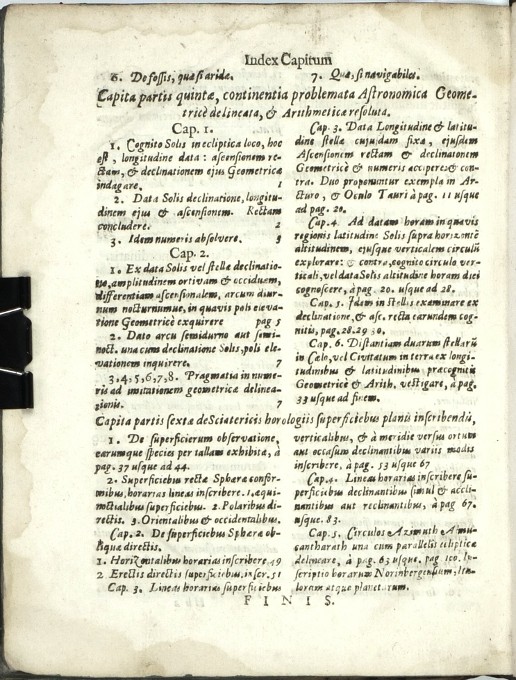 Index Capitum
6. De fossis, quæ si aridæ.
7. Quæ, si navigabiles.
Capita partis quintæ, continentia problemata Astronomica Geome-
tricè delineata, & Arithmeticæ resoluta.
Cap. 1.
1. Cognito Solis in ecliptica loco, hoc
est, longitudine data: ascensionem re-
ctam, & declinationem ejus Geometricæ
indagare. 1
2. Data Solis declinatione, longitu-
dinem ejus & ascensionem. Rectam
concludere. 2
3. Idem numeris absolvere. 3
Cap. 2.
1. Ex data Solis vel stellæ declinatio-
ne, amplitudinem ortivam & occiduem,
differentiam ascensionalem, arcum diur-
num nocturnumue, in quavis poli eleva-
tione Geometricè exquirere pag 5
2. Dato arcu semidurno aut semi-
noct. una cum declinatione Solis, poli ele-
vationem inquirere. 7
3,4,5,6,7,8. Pragmatia in nume-
ris ad imitationem geometricæ delinea-
tionis. 7
Cap. 3. Data Longitudine & latitu-
dine stellæ cujusdam fixæ, ejusdem
Ascensionem rectam & declinationem
Geometricè & numeris accipere & con-
tra. Duo proponuntur exempla in Ar-
cturo, & Oculo Tauri à pag. 11 usque
ad pag. 20.
Cap. 4. Ad datam horam in quavis
regionis latitudine Solis supra horizontē
altitudinem, ejusque verticalem circulū
explorare: & contra, cognito circulo ver-
ticali, vel data Solis altitudine horam diei
cognoscere, à pag. 20. usque ad 28.
Cap. 5. Idem in stellis examinare ex
declinatione, & asc. recta earundem cog-
nitis, pag. 28. 29 30.
Cap. 6. Distantiam duarum stellarū
in Cœlo, vel Civitatum in terra ex longi-
tudinibus & latitudinibus præcognitis
Geometricè & Arith. vestigare, à pag.
33 usque ad finem.
Capita partis sextæ de Sciatericis horologiis superficiebus planis inscribendis,
1. De superficierum observatione,
earumque species per tallam exhibita, à
pag. 37 usque ad 44.
2. Superficiebus rectæ Sphæræ confor-
mibus, horarias lineas inscribere. 1. æqui-
noctialibus superficiebus. 2. Polaribus di-
rectis. 3. Orientalibus & occidentalibus.
Cap. 2. De superficiebus Sphæræ ob-
liquæ directis.
1. Horizontalibus horarias inscribere 49
2 Erectis directis superficiebus inscr. 51
Cap. 3. Lineas horarias superficiebus
verticalibus, & à meridie versus ortum
aut occasum declinantibus variis modis
inscribere, à pag. 53 usque 67
Cap. 4. Lineas horarias inscribere su-
perficiebus declinantibus simul & accli-
nantibus aut reclinantibus, à pag 67.
usque. 83.
Cap. 5. Circulos Azimuth Almu-
cantharath una cum parallelis eclipticæ
delineare, à pag. 63 usque. pag. 100. In-
scriptio horarum Norinbergensium, Ita-
lorum atque planetarum.
FINIS.